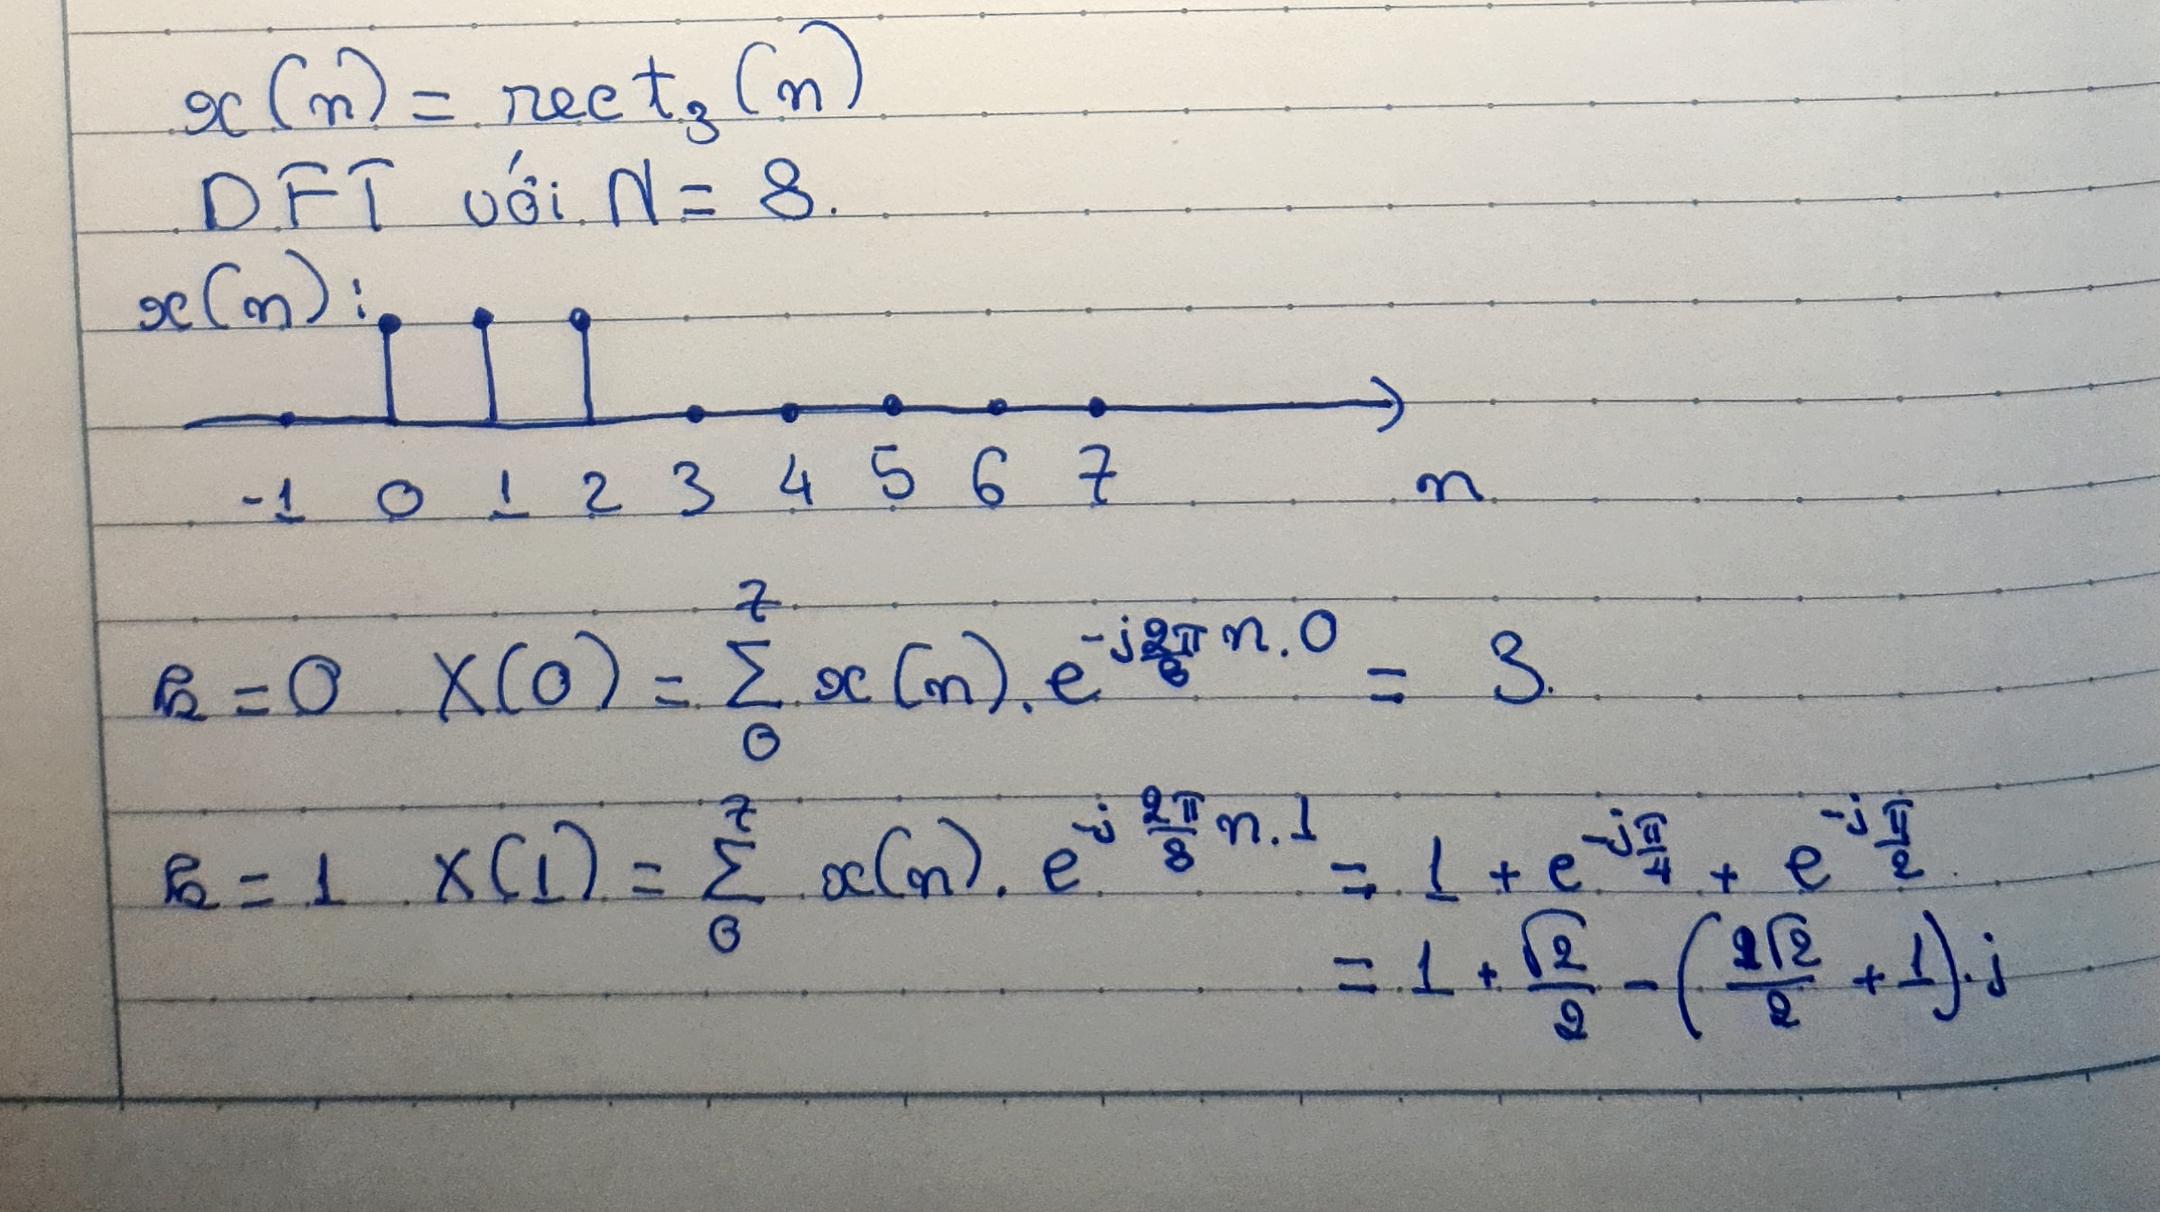 x(n) = rect₃(n)
DFT với N = 8.
x(n):
-1 0 1 2 3 4 5 6 7 n
k = 0 X(0) = Σ₀⁷ x(n). e^(-j 2π/8 n.0) = 3.
k = 1 X(1) = Σ₀⁷ x(n). e^(-j 2π/8 n.1) = 1 + e^(-j π/4) + e^(-j π/2).
= 1 + √2/2 - (√2/2 + 1).j